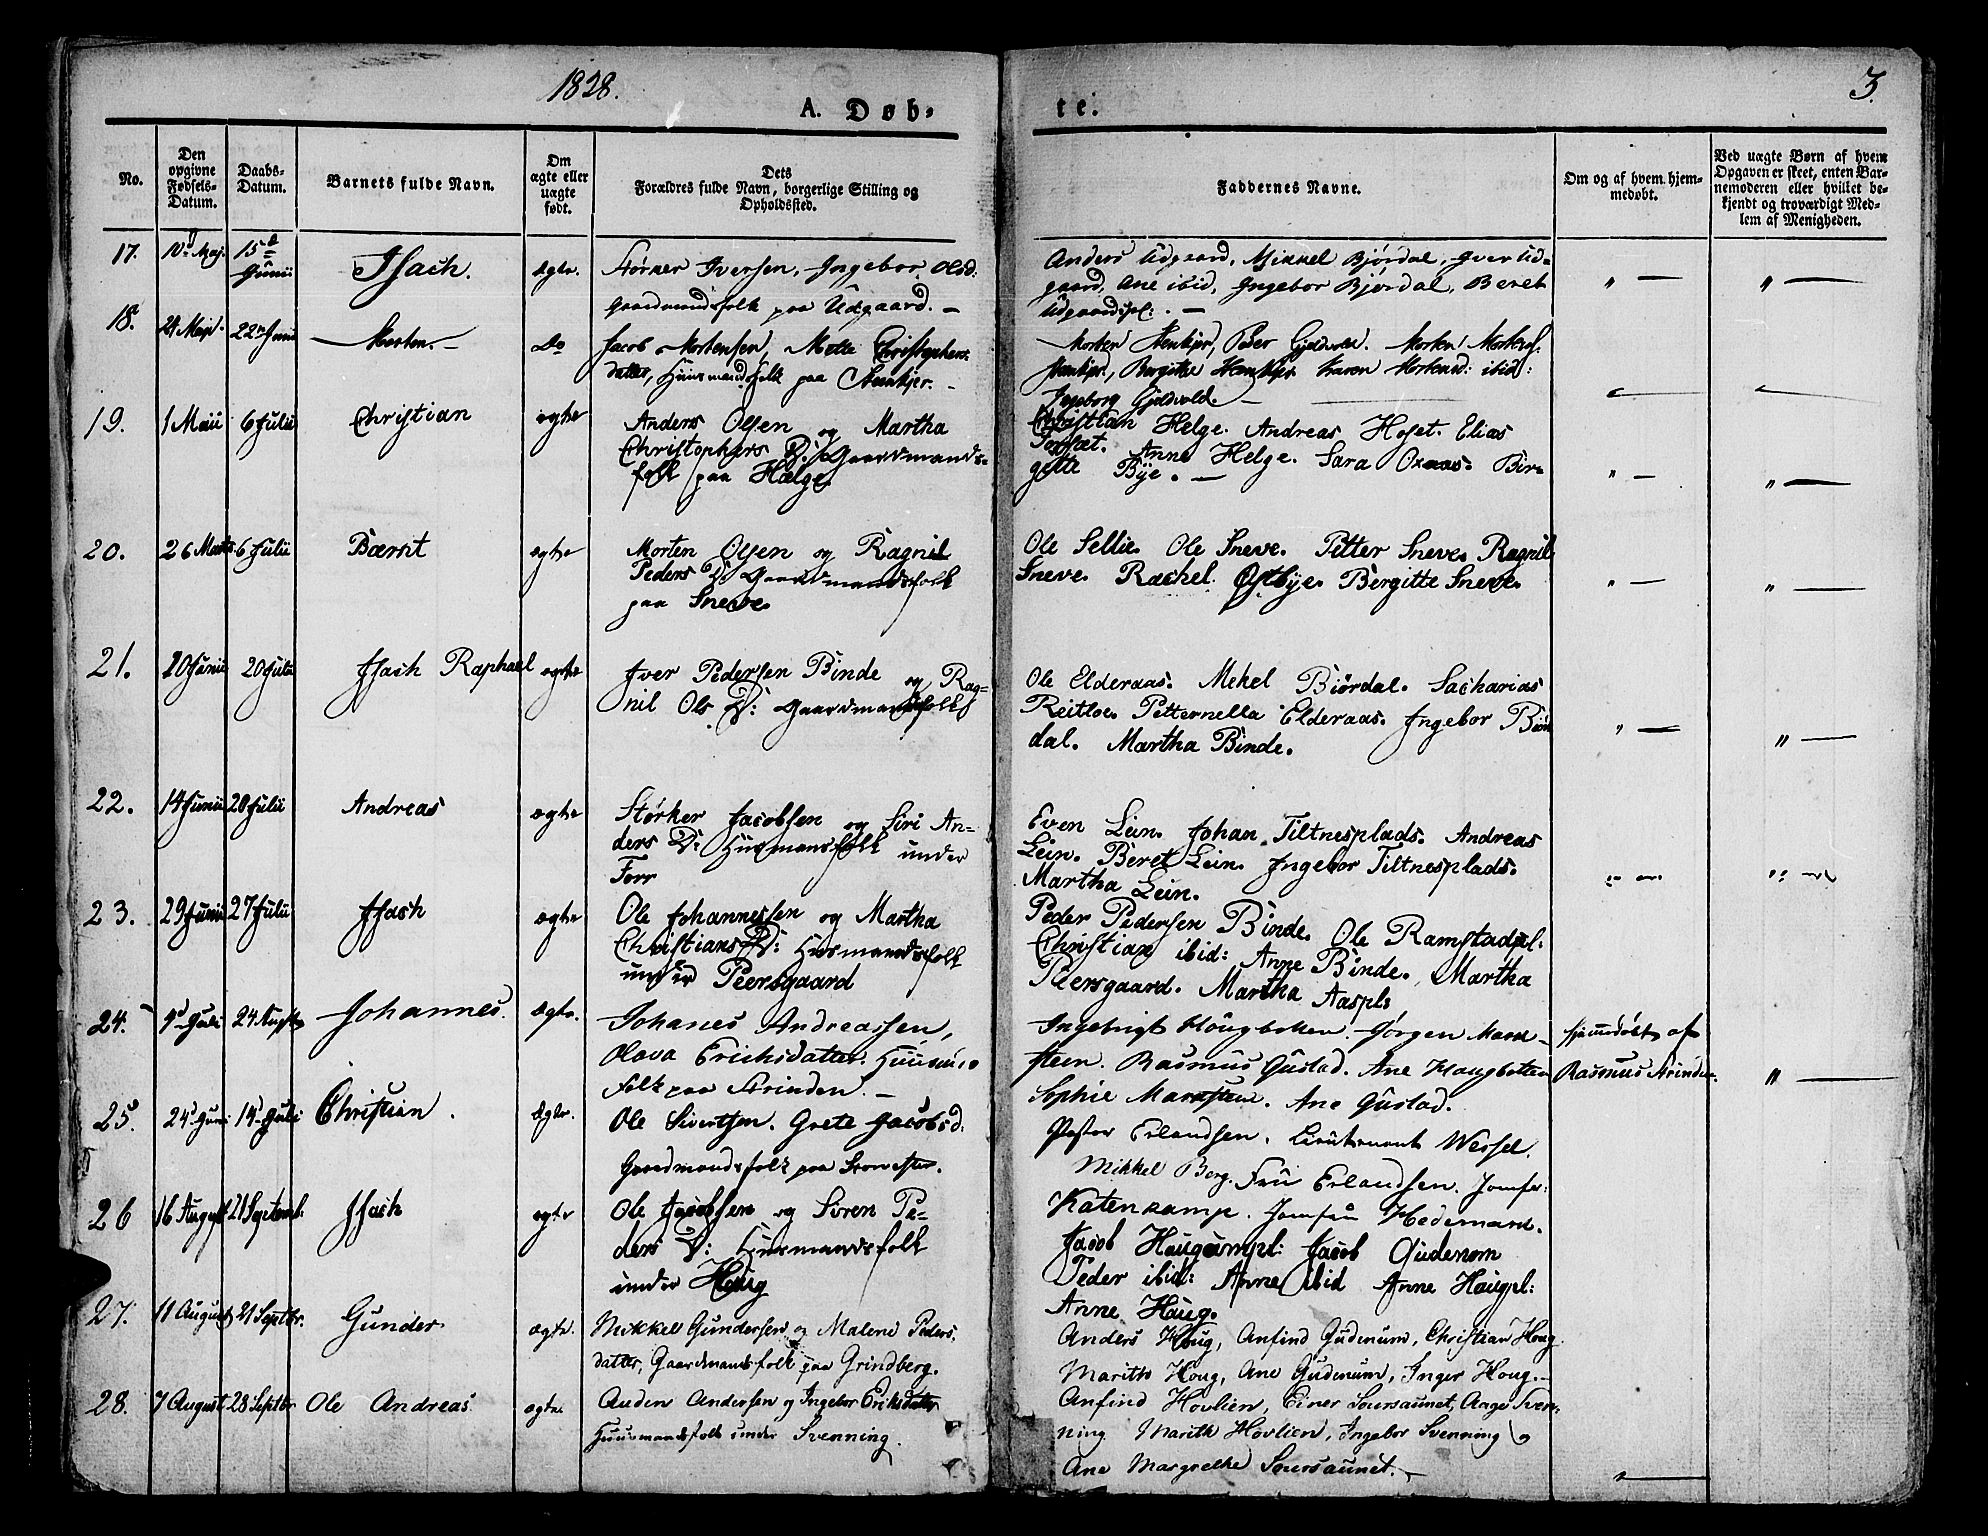 1828.
A. Døb-
te.
3.
No.
Den opgivne Fødsels-Datum.
Daabs-Datum.
Barnets fulde Navn.
Om ægte eller uægte født.
Dets
Forældres fulde Navn, borgerlige Stilling og
Opholdssted.
Faddernes Navne.
Om og af hvem hjem-
medøbt.
Ved uægte Børn af hvem
Opgaven er skeet, enten Bar-
nemoderen eller hvilket be-
kjendt og troværdigt Med-
lem af Menigheden.
17. 10de Maj. 15de Junii Isach. Ægte.
Størker Iversen, Ingebor Olsd:
Gaardmandsfolk paa Udgaard. —
Anders Udgaard, Mikkel Bjørdal, Iver Ud-
gaard, Ane ibid, Ingebor Bjørdal, Beret
Udgaardspl: . —
" — " —
18. 22n Junii — Morten. — Do
Jacob Mortensen, Mette Christophers
datter, Huusmandsfolk paa Steenkjer. —
Morten Steenkjer, Peder Gjeldvold. Morten Mortens:
Steenkjer, Bergitte Steenkjer Karen Mortensd: ibid:
Ingeborg Gjeldvold. —
19. 1 Maii 6 Julii Christian ægte
Anders Olsen og Martha
Christophers D: Gaardmands-
folk paa Hælge
Christian Helge. Andreas Hoset. Elias
Forsæt. Anne Helge. Sara Oxaas. Bir-
gitte Bye. —
" — " —
20. 26 Marts 6 Julii Bærnt ægte
Morten Olsen og Ragnil
Peders D: Gaardmandsfolk
paa Sneve
Ole Sellie. Ole Sneve. Petter Sneve. Ragnil
Sneve. Rachel Østbye. Bergitte Sneve.
" — " —
21. 10 Junii 20 Julii Isach Raphael ægte
Iver Pedersen Binde og Rag-
nil Ols D: Gaardmandsfolk
Ole Elderaas. Mekel Biördal. Sacharias
Reitloe. Petternella Elderaas. Ingebor Biör
dal. Martha Binde.
" — " —
22. 14 Junii 20 Julii Andreas ægte
Størker Jacobsen og Siri An-
ders D: Husmansfolk under
Forr
Even Lein. Johan Tiltnesplads. Andreas
Lein. Beret Lein. Ingebor Tiltnesplads.
Martha Lein.
23. 29 Junii 27 Julii Isach ægte
Ole Johannessen og Martha
Christians D: Husmandsfolk
under Peersgaard
Peder Pedersen Binde. Ole Ramstadpl:
Christian ibid: Anne Binde. Martha
Peersgaard. Martha Aaspl:
24. 9d Juli 24 Augst Johannes. Ægte.
Johanes Andreassen,
Olava Erichsdatter. Huusm:
folk paa Strinden. —
Ingebrigt Hougbotten. Jørgen Mare-
steen. Rasmus Gustad. Ane Hougbotten
Sophie Maresteen. Ane Gustad.
Hjemmedøbt af
Rasmus Strinden.
" —
25. 24d Juni 14d Juli Christian. Ægte.
Ole Sivertsen. Grete Jacobsd:
Gaardmandsfolk paa
Pastor Erlandsen. Lieutenant Wessel.
Mikkel Borg. Fru Erlandsen. Jomfr:
Katenkamp. Jomfru Hedemand.
26 16 August 21 Septemb: Isach ægte
Ole Jacobsen og Søren Pe-
ders D: Husmandsfolk
under Houg
Jacob Haugumpl: Jacob Gudenom
Peder ibid: Anne ibid Anne Haugpl:
Anne Haug.
27. 11 August 21 Septbr. Gunder ægte.
Mikkel Gundersen og Malene Peders
datter, Gaardmandsfolk paa Grindberg.
Anders Houg, Anfind Gudenum, Christian Houg
Marith Houg, Ane Gudenum, Inger Houg. —
28. 7 August 28 Septbr Ole Andreas ægte.
Auden Andersen og Ingebor Eriksdatter
Huusmandsfolk under Svenning.
Anfind Hovlien, Einer Soursaunet, Aage Sven-
ning Marith Hovlien, Ingebor Svenning og
Ane Margrethe Soursaunet. —